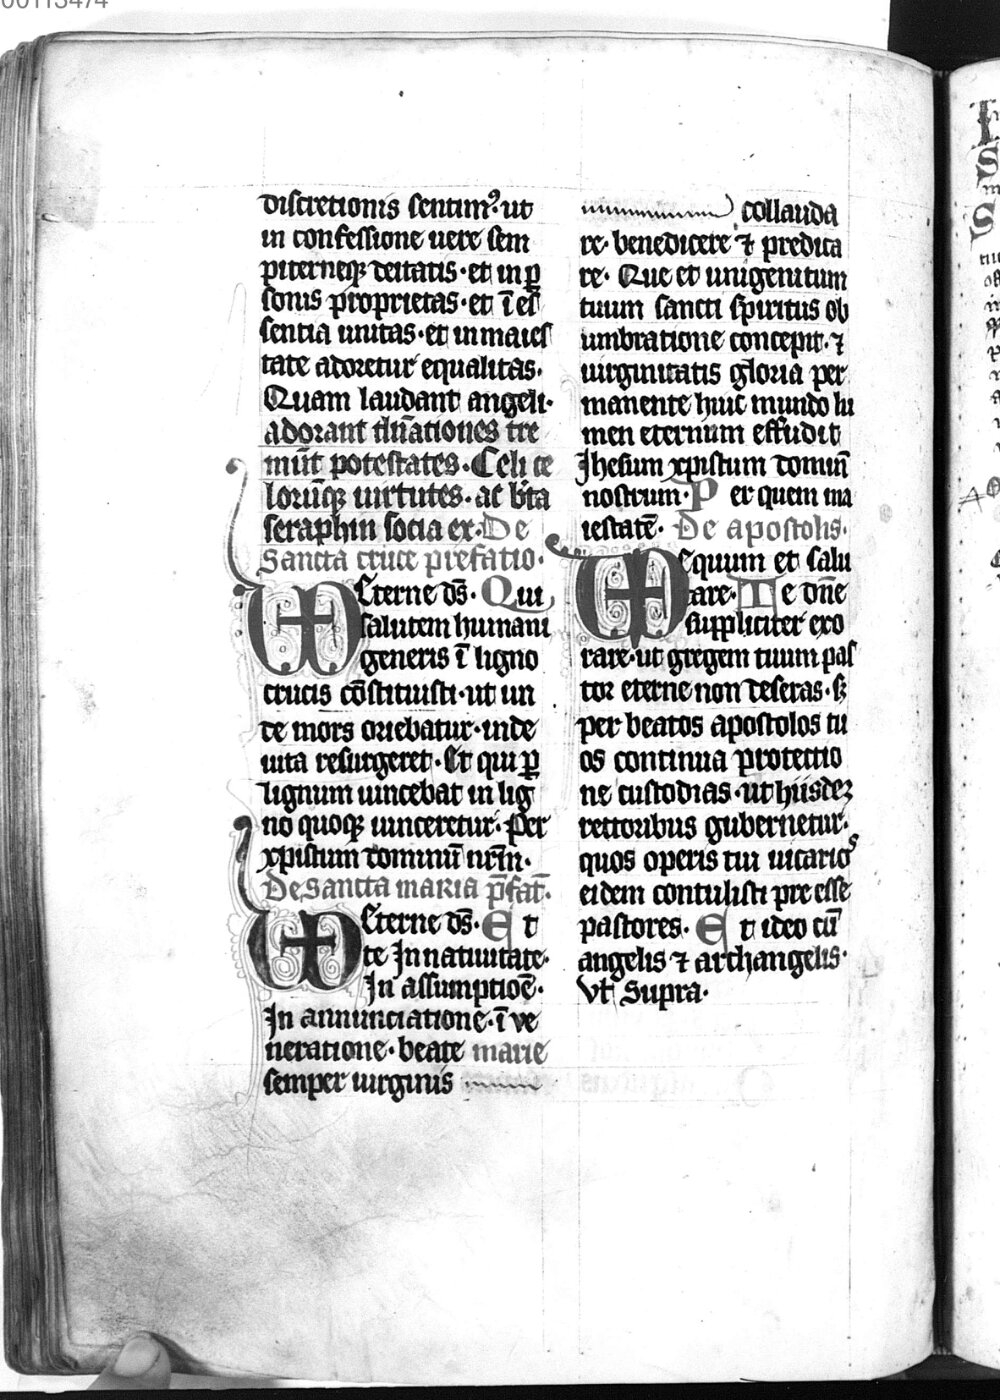 00113474
discretionis sentimꝰ· ut
in confessione uere sem
piterneqꝫ deitatis· et in ꝑ
sonis proprietas· et ī es
sentia unitas· et in maies
tate adoretur equalitas·
Quam laudant angeli·
adorant dn̄ationes tre
mūt potestates· Celi ce
lorūqꝫ uirtutes· ac bt̄a
seraphin socia ex· De
Sancta cruce prefatio·
Eterne ds̄· Qui
salutem humani
generis ī ligno
crucis cōstituisti· ut un
de mors oriebatur· inde
uita resurgeret· Et qui ꝑ
lignum uincebat in lig
no quoqꝫ uinceretur· Per
xpistum dominū nr̄m·
De sancta maria p̄fat̄·
Eterne ds̄· Et
te In natiuitate·
In assumptiōe·
In annunciatione· ī ve
neratione· beate marie
semper uirginis
collauda
re· benedicere ⁊ predica
re· Que et unigenitum
tuum sancti spiritus ob
umbratione concepit· ⁊
uirginitatis gloria per
manente huic mundo lu
men eternum effudit
Jhesum xpistum dominū
nostrum· Per quem ma
iestatē· De apostolis·
Equum et salu
tare· Te dn̄e
suppliciter exo
rare· ut gregem tuum pas
tor eterne non deseras· sꝫ
per beatos apostolos tu
os continua protectio
ne custodias· ut hiisdeꝫ
rectoribus gubernetur·
quos operis tui uicarioˢ
eidem contulisti pre esse
pastores· Et ideo cū
angelis ⁊ archangelis·
vt Supra·